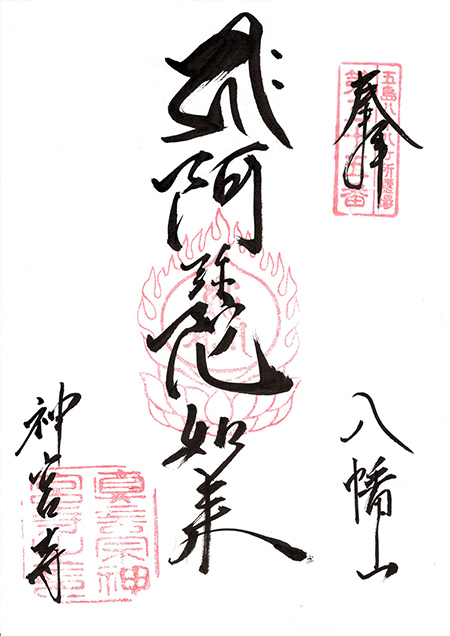 奉拝
五島八十八ヶ所霊場
八幡山
阿弥陀如来
神宮寺
真言宗神